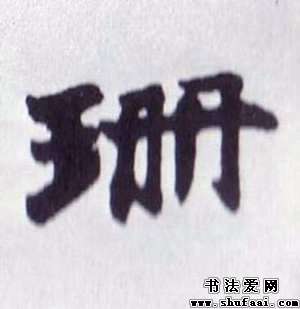 珊
书法爱网
www.shufaai.com